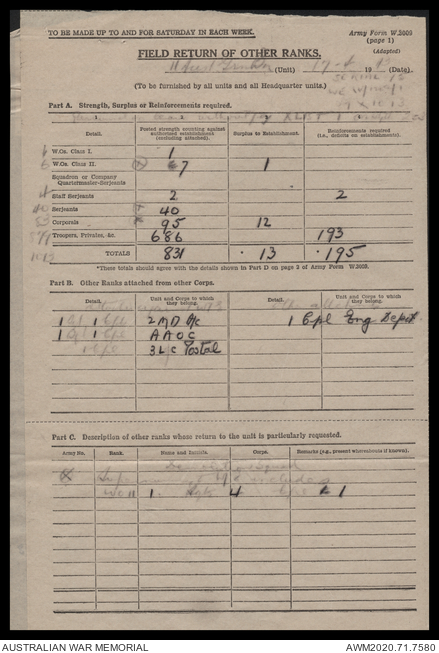 TO BE MADE UP TO AND FOR SATURDAY IN EACH WEEK.
Army Form W.3009
(page 1)
(Adapted)
FIELD RETURN OF OTHER RANKS.
(Unit) 17-4 19 (Date).
(To be furnished by all units and all Headquarter units.)
Part A. Strength, Surplus or Reinforcements required.
Detail. Posted strength counting against authorised establishment (excluding attached). Surplus to Establishment. Reinforcements required (i.e., deficits on establishment).
6 W.Os. Class I. 1
6 W.Os. Class II. 67 1
Squadron or Company Quartermaster-Serjeants
4 Staff Serjeants 2 2
40 Serjeants 40
83 Corporals 95 12
Troopers, Privates, &c. 686 193
TOTALS 831 · 13 · 195
*These totals should agree with the details shown in Part D on page 3 of Army Form W.3009.
Part B. Other Ranks attached from other Corps.
Detail. Unit and Corps to which they belong. Detail. Unit and Corps to which they belong.
1 1 Cpl 2 MD 1 Cpl Eng Depot
1 1 Cpl AAOC
1 Cpl 3 L of C Postal
Part C. Description of other ranks whose return to the unit is particularly requested.
Army No. Rank. Name and Initials. Corps. Remarks (e.g., present whereabouts if known).
WO II 1 Sgts 4 Cpls 1
AUSTRALIAN WAR MEMORIAL
AWM2020.71.7580